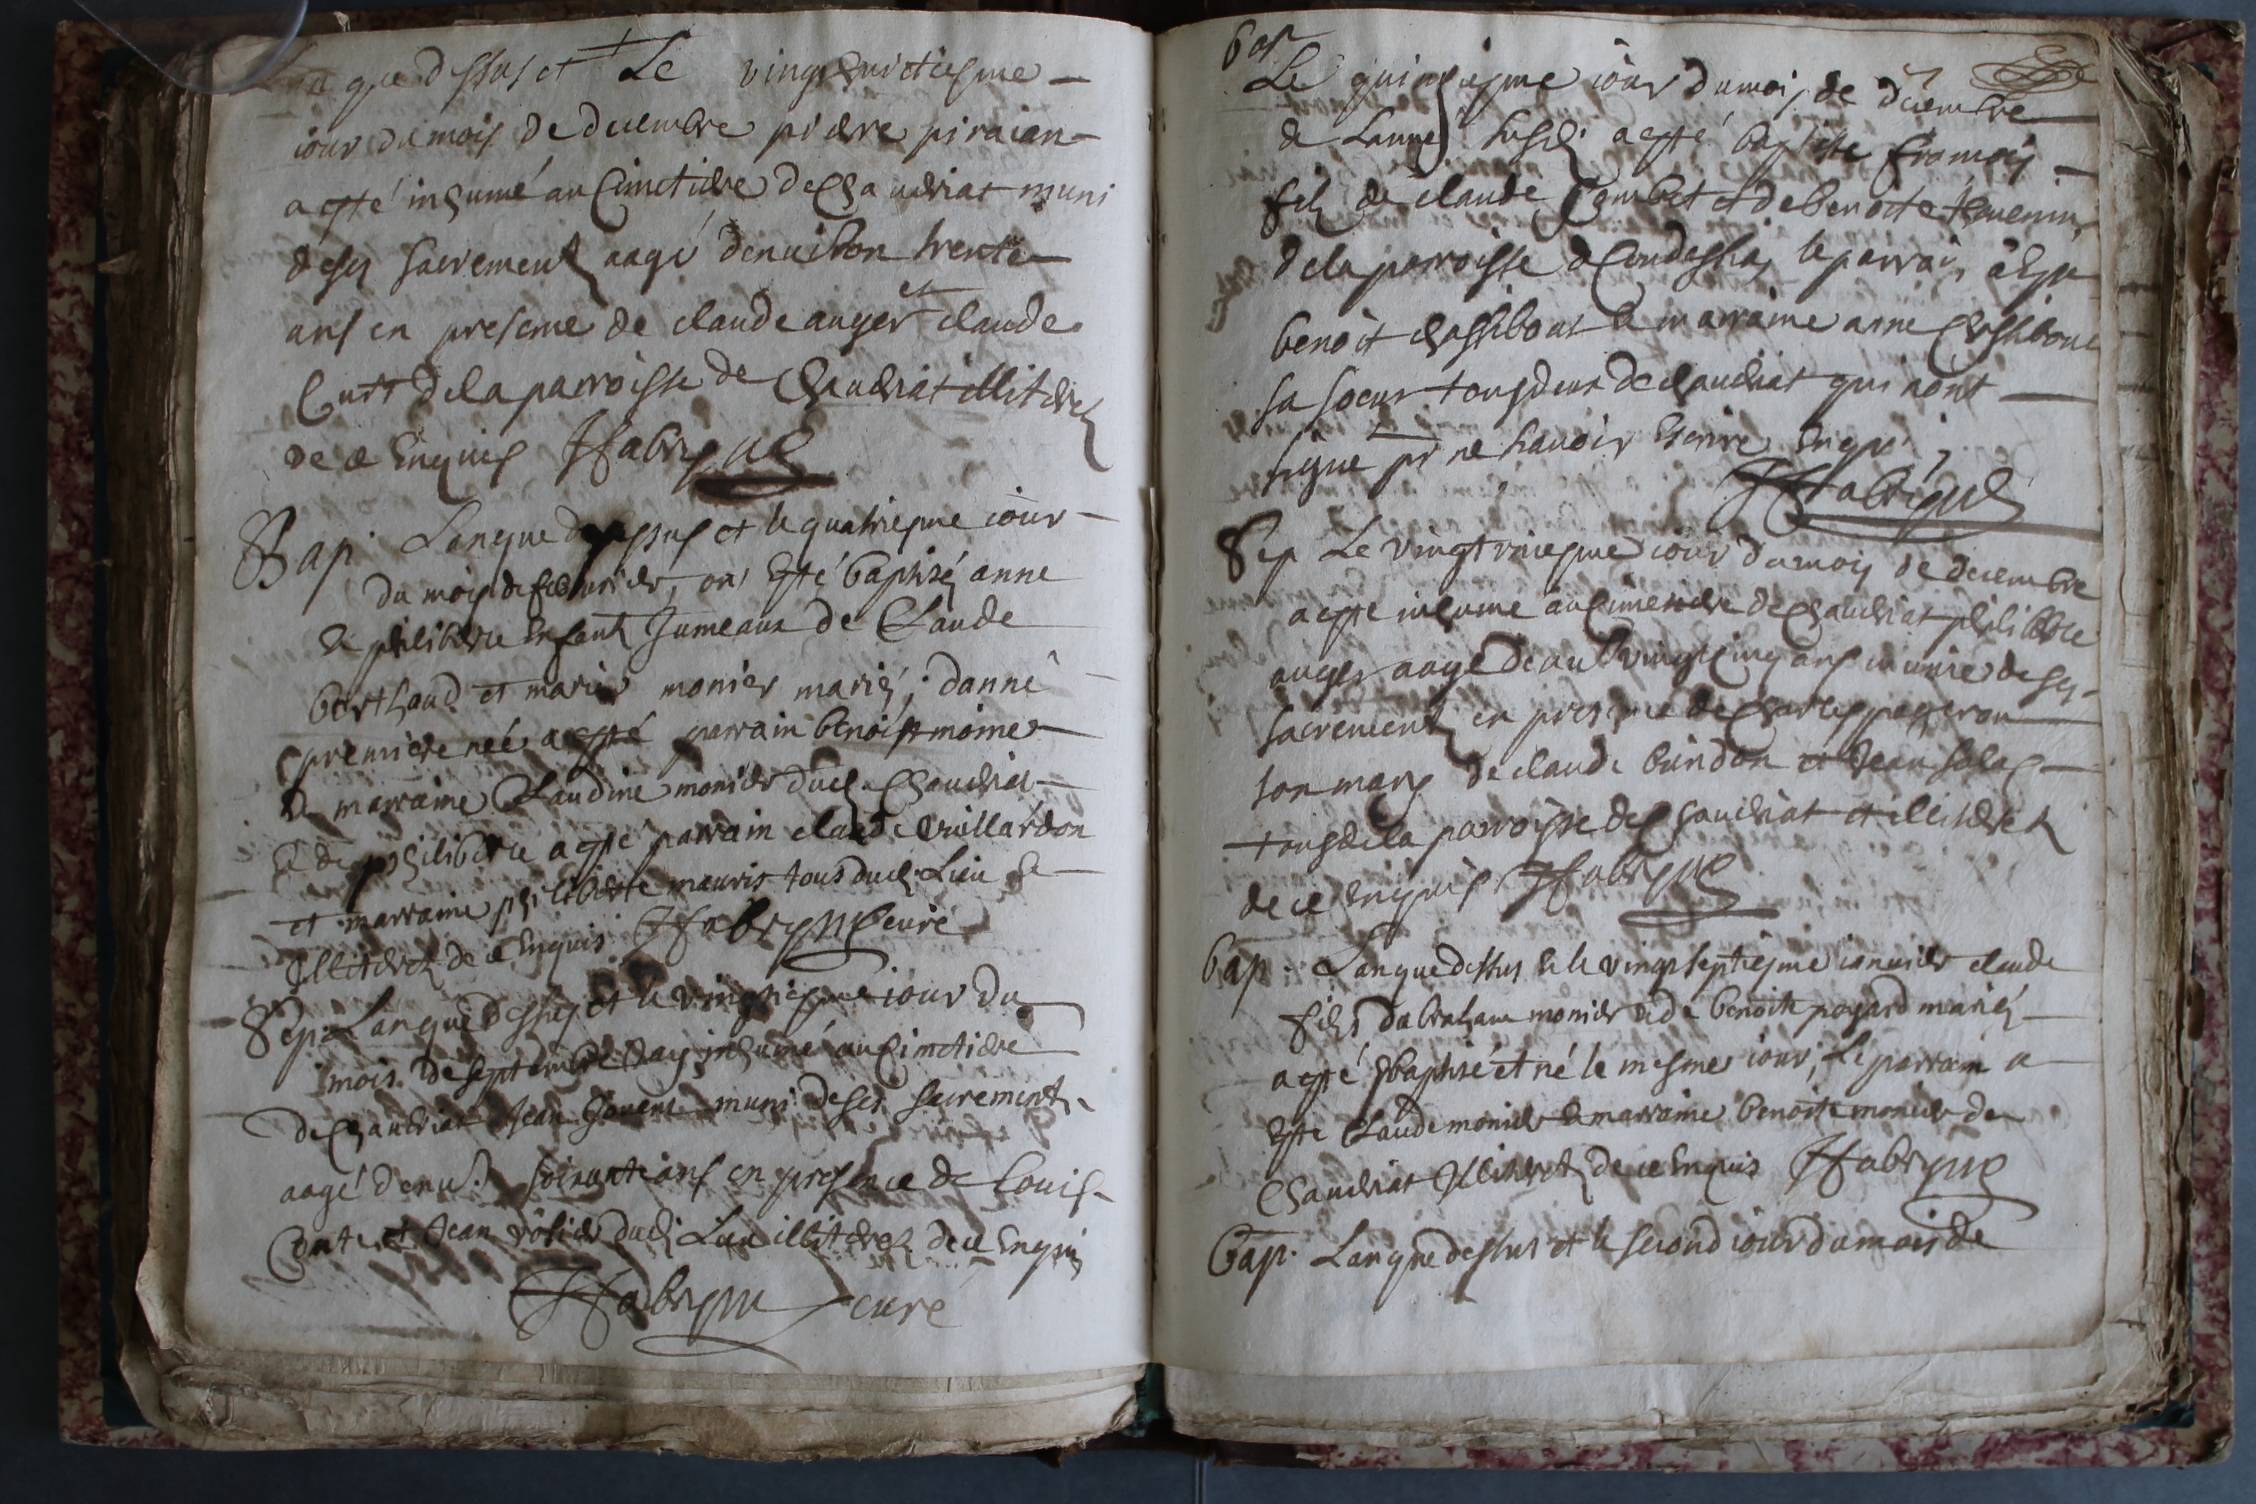 que dessus et Le vingt huictiesme
iour du mois de decembre pierre piraian
a esté inhumé au Cimetiere de Chaveriat muni
de ses sacrements aagé denuiron trente
ans en presence de claude auger et claude
Curt de la parroisse de Chaveriat illiterés
de ce Enquis JFabrique
Bap. Lanque dessus et le quatriesme iour
du mois de febvrier, ont esté baptisés anne
& philiberte Enfants Jumeaux de Claude
berthaud et marie monier mariés; danne
premiere née a esté parrain benoist moine
& marraine Claudine monier dud. Chaveriat
& de philiberte a esté parrain claude vuillardon
et marraine philiberte mauris tous dud. Lieu &
illiterés de ce Enquis JFabrique curé
Sep. Lanque dessus et le vingtiesme iour du
mois de septembre Jay inhumé au Cimetiere
de Chaveriat Jean muni de ses sacrements
aagé denv. soixante ans en presence de Louis
Conte et Jean rosier dud. Lieu illiterés de ce Enquis
JFabrique curé
bap.
Le quinsiesme iour du mois de decembre
de Lannée susd. a esté baptiste francois
fils de claude Combet et de benoite tevenin
de la parroisse de Condessia, le parrain a Este
benoit chassibout & marraine anne Chassibout
sa soeur tous deux de chaveriat qui nont
signé pr ne scavoir Escrire Enquis
JFabrique
Sep Le vingt uniesme iour du mois de decembre
a esté inhumé au Cimetiere de Chaveriat philiberte
auger aagé de vingt cinq ans munie de ses
sacrements en presence de Charles passeron
son mary de claude bundon et Jean
tous de la parroisse de Chaveriat et illiterés
de ce enquis JFabrique
bap. Lanque dessus & le vingt septiesme ianvier claude
fils dabraham monier & de benoite poyard mariés
a esté baptisé et né le mesme iour; Le parrain a
Esté Claude monier & marraine benoite monier de
Chaveriat Illiterés de ce Enquis JFabrique
bap. Lanque dessus et le second iour du mois de